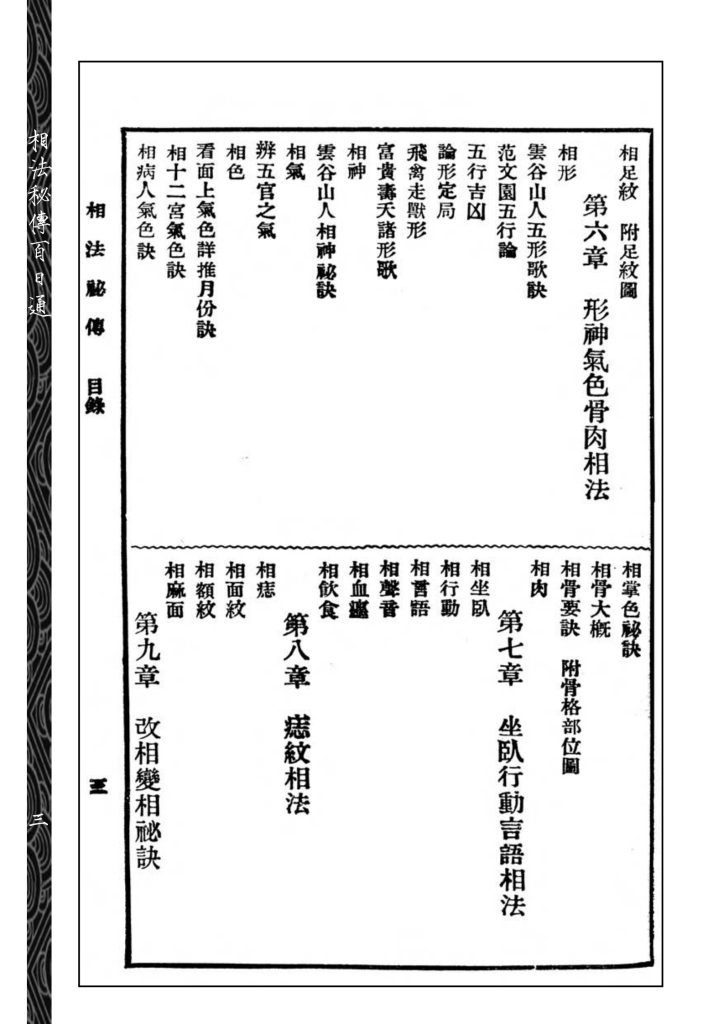 相足紋　附足紋圖
第六章　形神氣色骨肉相法
相形
雲谷山人五形歌訣
范文園五行論
五行吉凶
論形定局
飛禽走獸形
富貴壽夭諸形歌
相神
雲谷山人相神祕訣
相氣
辨五官之氣
相色
看面上氣色詳推月份訣
相十二宮氣色訣
相病人氣色訣
相掌色祕訣
相骨大概
相骨要訣　附骨格部位圖
相肉
第七章　坐臥行動言語相法
相坐臥
相行動
相言語
相聲音
相血
相飲食
第八章　痣紋相法
相痣
相面紋
相額紋
相麻面
第九章　改相變相祕訣
相法祕傳　目錄
三
相法秘傳百日通
三